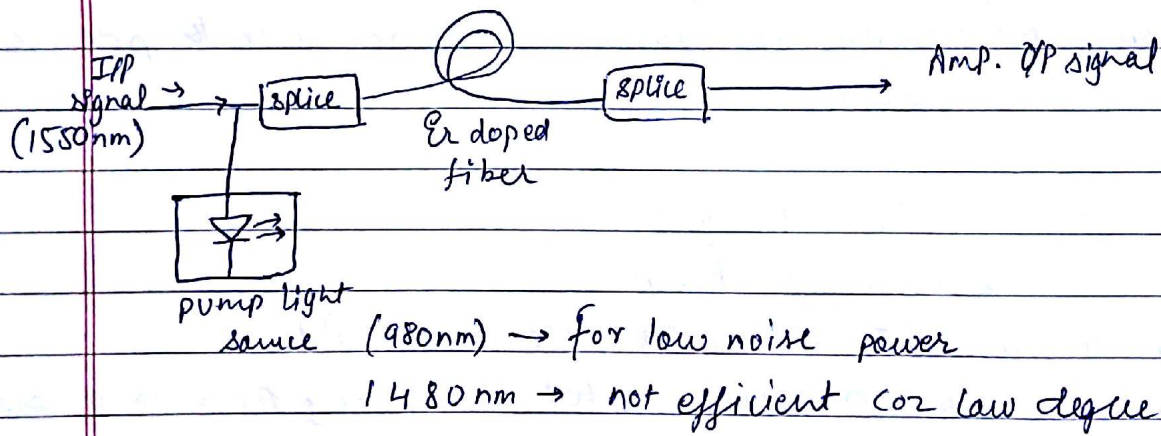 I/P
signal →
(1550nm)
splice
Er doped
fiber
splice
Amp. O/P signal
pump light
source (980nm) → for low noise power
1480nm → not efficient coz low degree